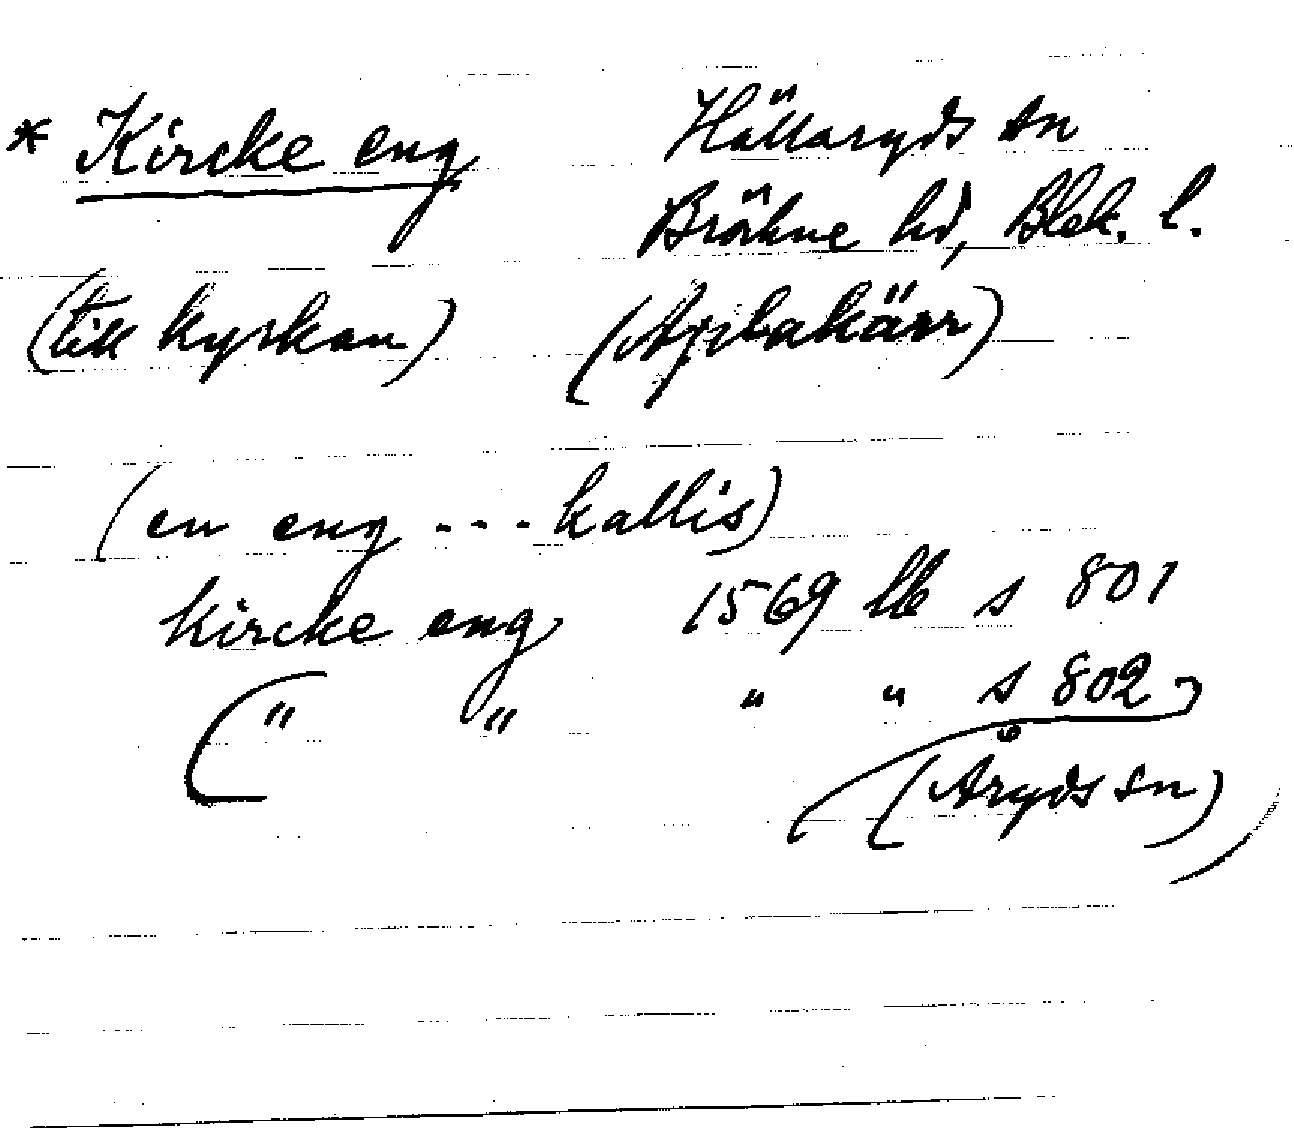 * Kircke eng Hällaryds sn
Bräkne hd, Blek. l.
(till kyrkan) (Aplakärr)
(en eng --- kallis)
kircke eng 1569 lb s 801
(" " " " s 802)
(Åryds sn)